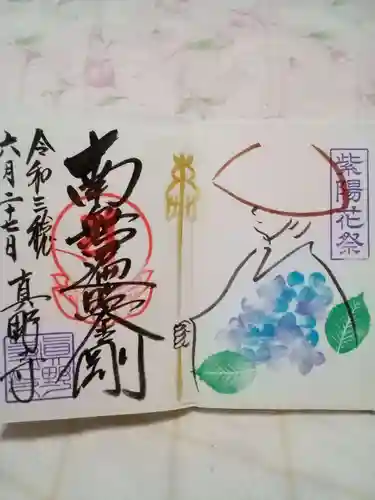 紫陽花祭
南無遍照金剛
令和三年
六月二十七日 真野寺